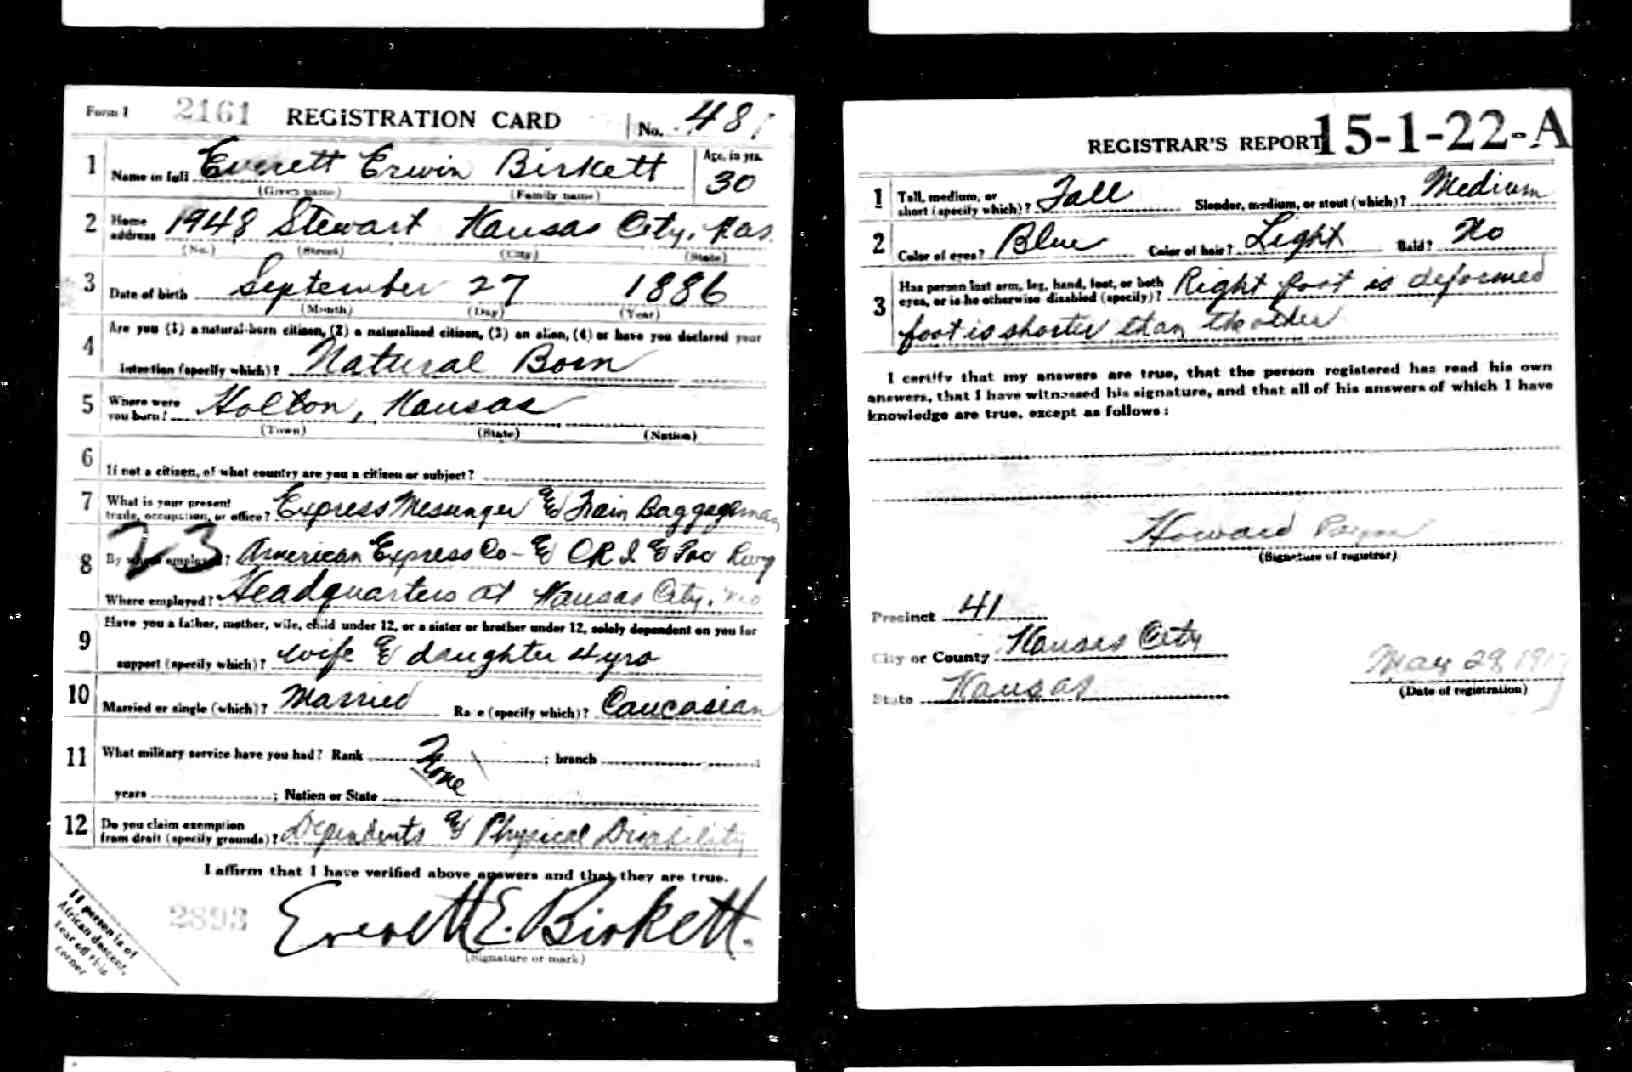 Form 1 2161 REGISTRATION CARD No. 48
1 Name in full Everett Erwin Birkett Age, in yrs. 30
(Given name) (Family name)
2 Home address 1948 Stewart Kansas City, Kas.
(No.) (Street) (City) (State)
3 Date of birth September 27 1886
(Month) (Day) (Year)
4 Are you (1) a natural-born citizen, (2) a naturalized citizen, (3) an alien, (4) or have you declared your
intention (specify which)? Natural Born
5 Where were you born? Holton, Kansas
(Town) (State) (Nation)
6 If not a citizen, of what country are you a citizen or subject?
7 What is your present trade, occupation, or office? Express Messenger & Train Baggageman
23
8 By whom employed? American Express Co - & C R I & Pac Rwy
Where employed? Headquarters at Kansas City, Mo
9 Have you a father, mother, wife, child under 12, or a sister or brother under 12, solely dependent on you for
support (specify which)? wife & daughter 4 yrs
10 Married or single (which)? Married Race (specify which)? Caucasian
11 What military service have you had? Rank None ; branch
years ; Nation or State
12 Do you claim exemption from draft (specify grounds)? Dependents & Physical Disability
I affirm that I have verified above answers and that they are true.
2893
Everett E. Birkett.
(Signature or mark)
If person is of
African descent,
tear off this
corner
REGISTRAR'S REPORT 15-1-22-A
1 Tall, medium, or short (specify which)? Tall Slender, medium, or stout (which)? Medium
2 Color of eyes? Blue Color of hair? Light Bald? No
3 Has person lost arm, leg, hand, foot, or both eyes, or is he otherwise disabled (specify)? Right foot is deformed
foot is shorter than the other
I certify that my answers are true, that the person registered has read his own
answers, that I have witnessed his signature, and that all of his answers of which I have
knowledge are true, except as follows:
Howard
(Signature of registrar)
Precinct 41
City or County Kansas City
State Kansas
May 29, 1917
(Date of registration)